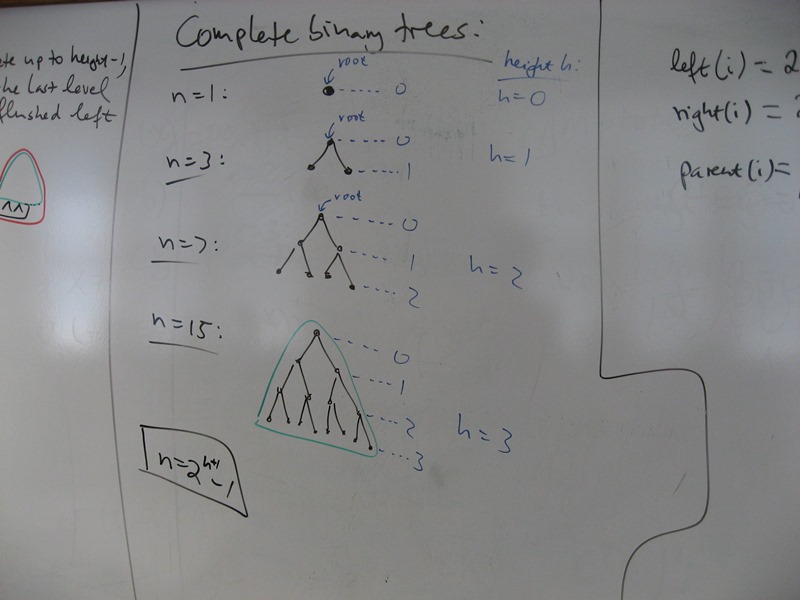 up to height-1,
the last level
flushed left
Complete binary trees:
height h:
n=1:
root
0
h=0
n=3:
root
0
1
h=1
n=7:
root
0
1
2
h=2
n=15:
0
1
2
3
h=3
n=2^{h+1}-1
left(i) = 2
right(i) = 2
parent(i)=